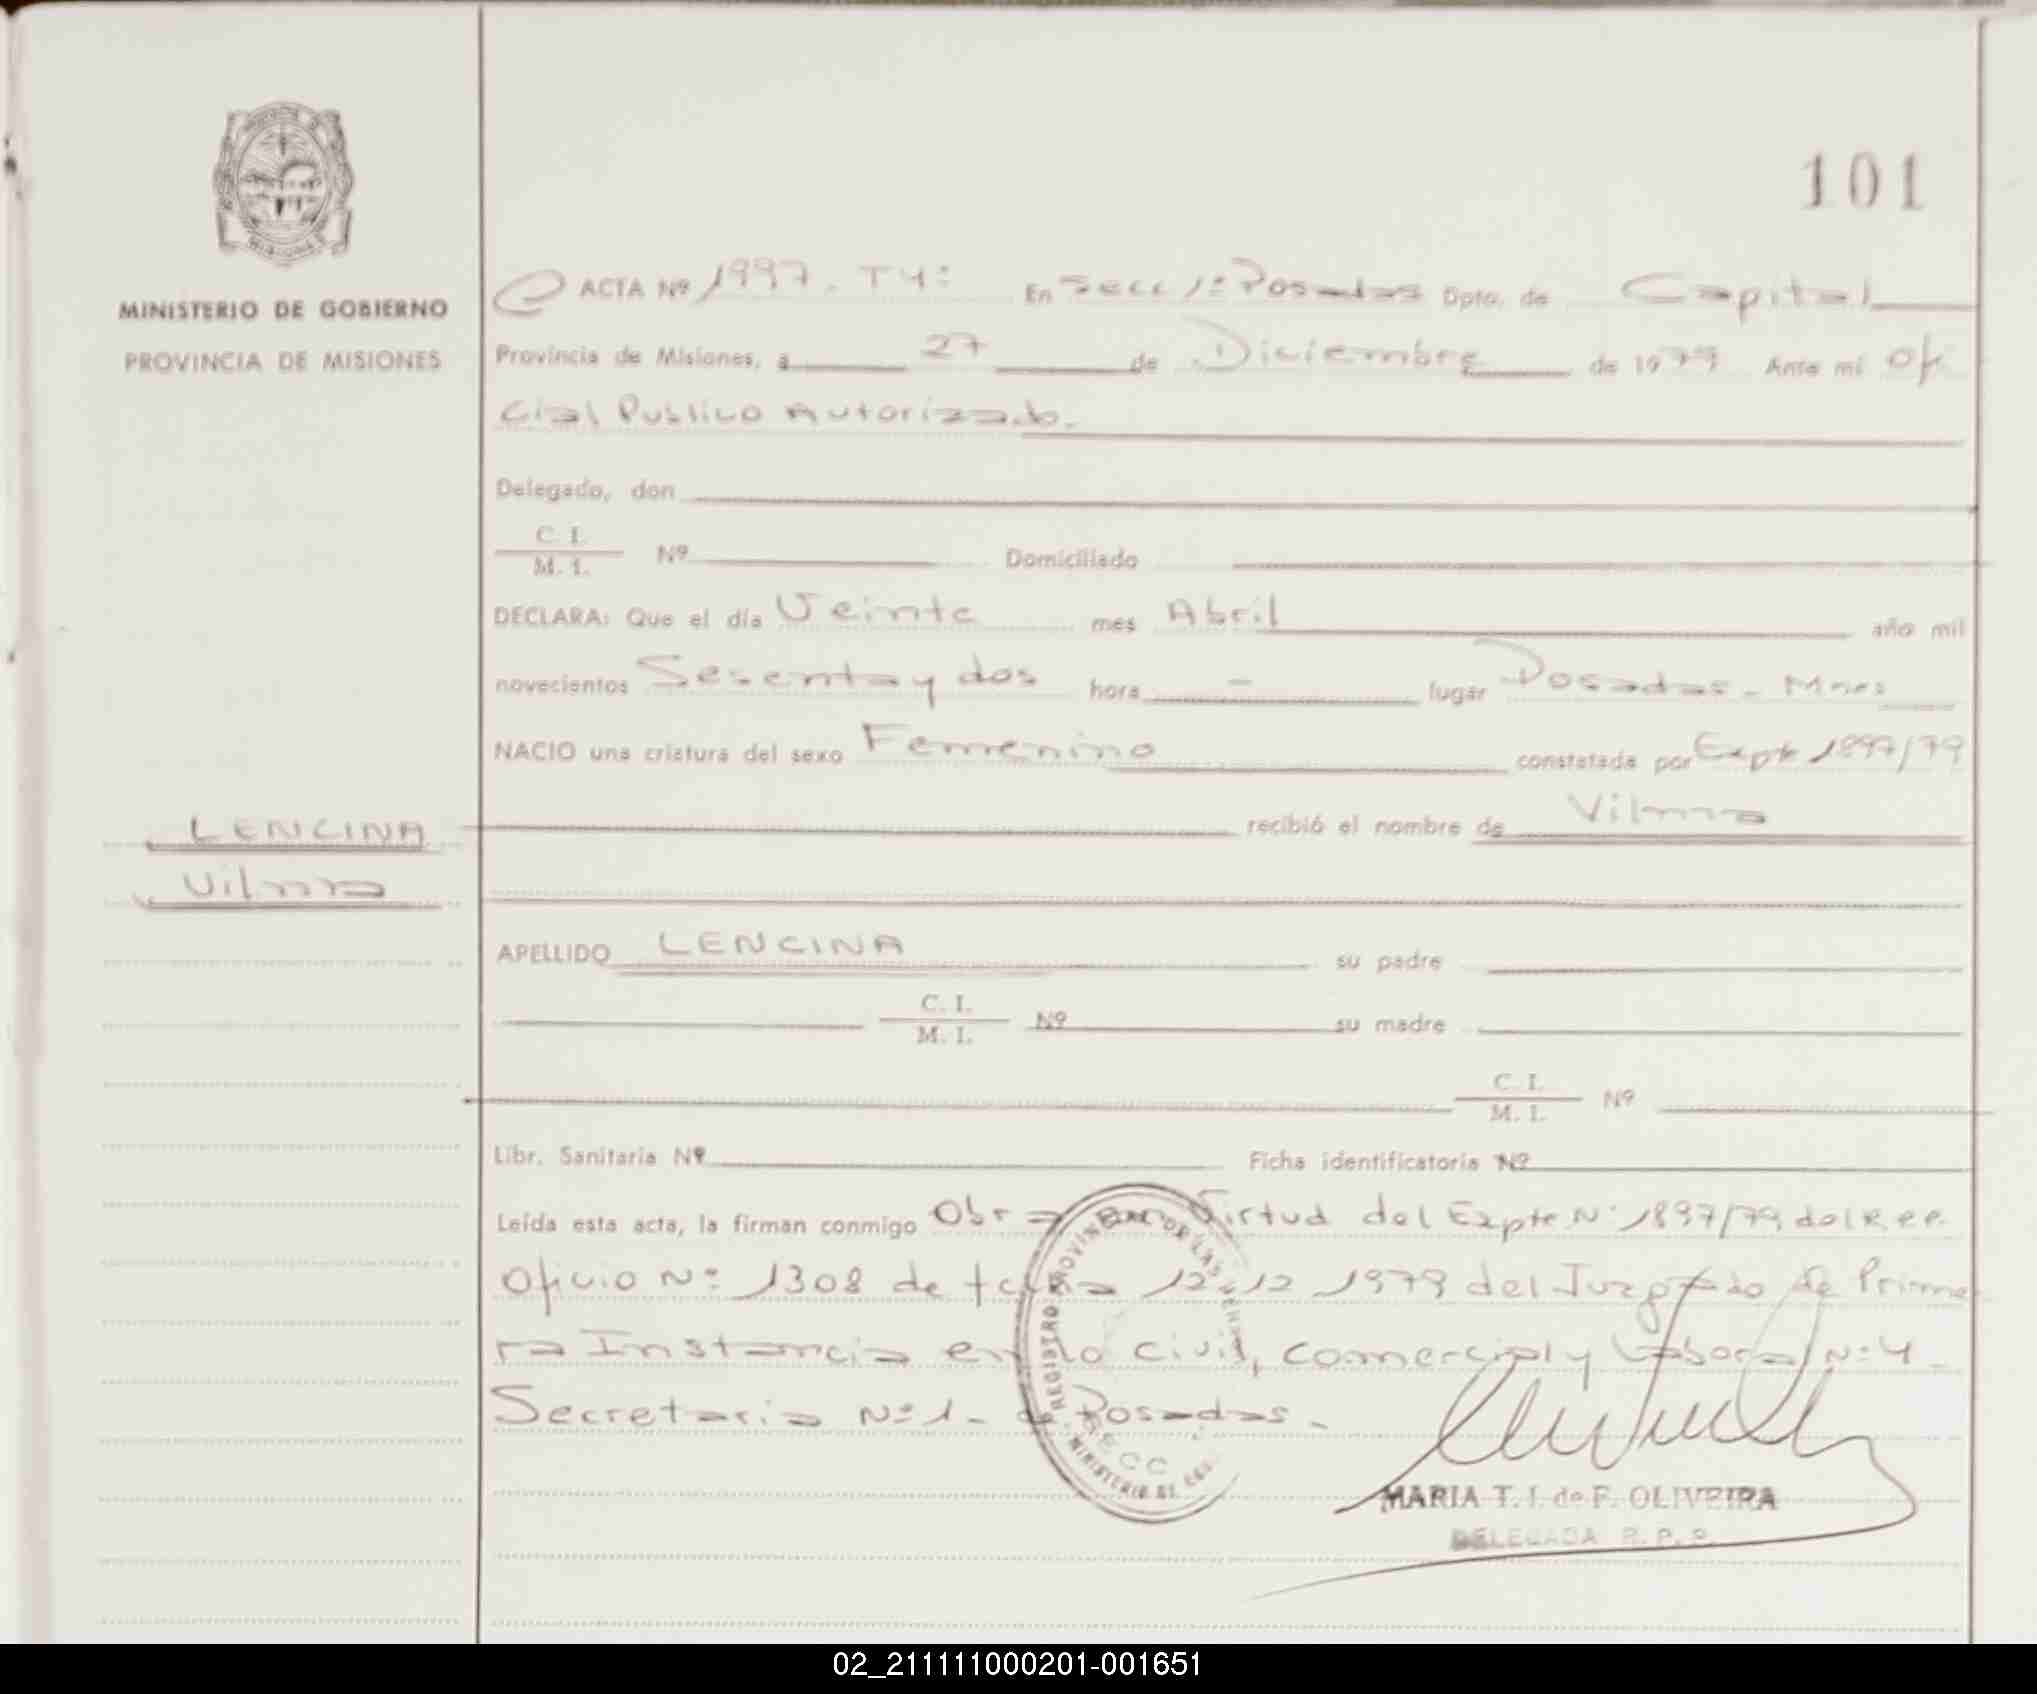 101
MINISTERIO DE GOBIERNO
PROVINCIA DE MISIONES
ACTA Nº 1997. T4: En Secc 1ª Posadas Dpto. de Capital
Provincia de Misiones, a 27 de Diciembre de 1979 Ante mi Ofi
cial Publico Autorizado.
Delegado, don
C. I.
M. I. Nº Domiciliado
DECLARA: Que el día Veinte mes Abril año mil
novecientos Sesenta y dos hora - lugar Posadas - Mnes
NACIO una criatura del sexo Femenino constatada por Expte 1897/79
recibió el nombre de Vilma
LENCINA
Vilma
APELLIDO LENCINA su padre
C. I.
M. I. Nº su madre
C. I.
M. I. Nº
Libr. Sanitaria Nº Ficha identificatoria Nº
Leída esta acta, la firman conmigo Obra en Virtud del Expte Nº 1897/79 del R.P.P.
Oficio Nº 1308 de fecha 12-12 1979 del Juzgado de Prime
ra Instancia en lo civil, comercial y Laboral Nº 4
Secretaria Nº 1 - de Posadas.
REGISTRO PROVINCIAL DE LAS
SECC
MINISTERIO DE
MARIA T. I. de F. OLIVEIRA
DELEGADA R. P. P.
02_211111000201-001651